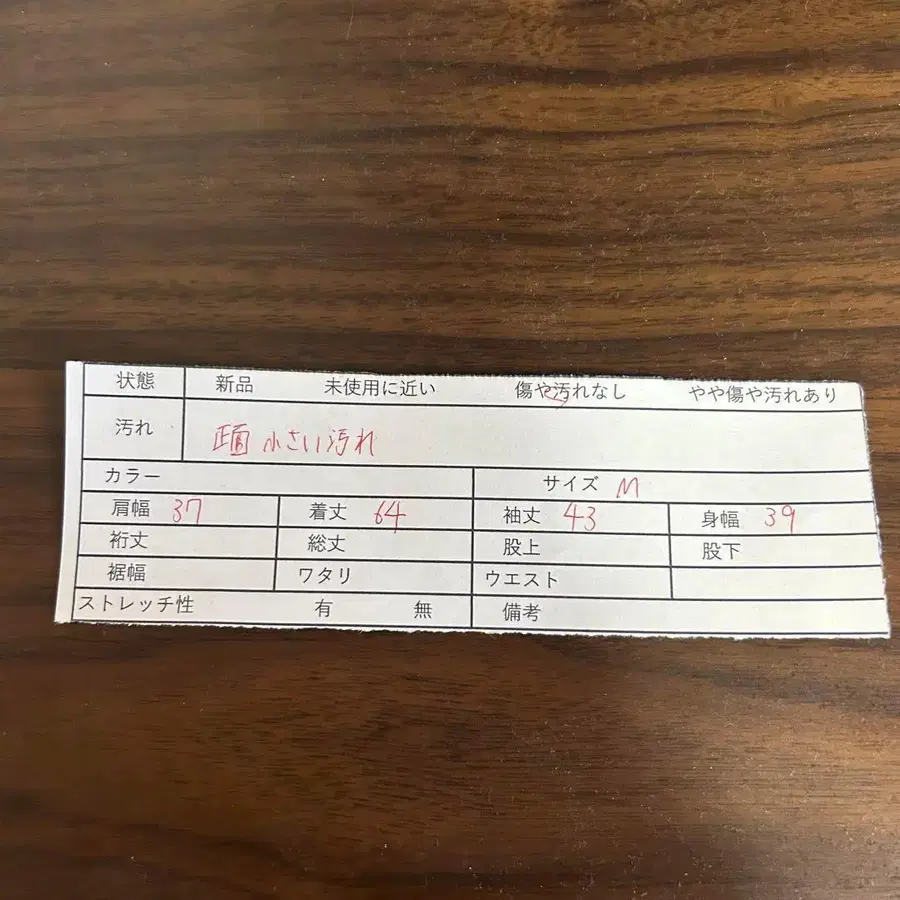 状態 新品 未使用に近い 傷や汚れなし やや傷や汚れあり
汚れ 正面 小さい汚れ
カラー サイズ M
肩幅 37 着丈 64 袖丈 43 身幅 39
裄丈 総丈 股上 股下
裾幅 ワタリ ウエスト
ストレッチ性 有 無 備考